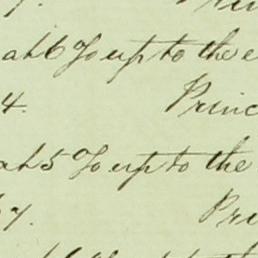 at 6 % up to the
4. Princ
at 5 % up to the
7. Pri